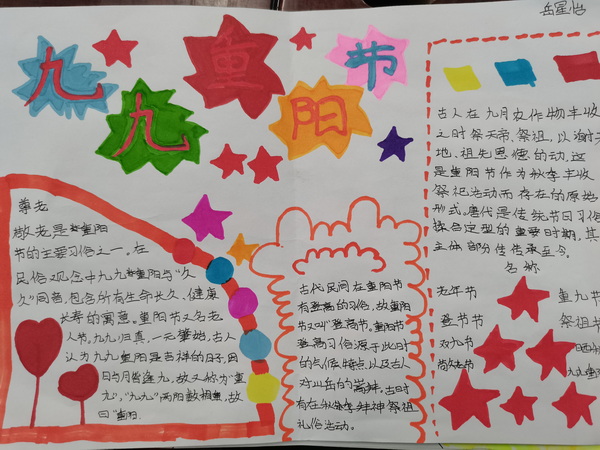 岳星怡
九九重阳节
尊老
敬老是重阳
节的主要习俗之一。在
民俗观念中九九重阳与“久
久”同音,包含所有生命长久、健康
长寿的寓意。重阳节又名老
人节,九九归真,一元肇始,古人
认为九九重阳是吉祥的日子,因
日与月皆逢九,故又称为“重
九”,“九九”两阳数相重,故
曰“重阳
古代民间在重阳节
有登高的习俗,故重阳
节又叫“登高节。重阳节
登高习俗源于此时
的气候特点以及古人
对山岳的崇拜。古时
有在秋季拜神祭祖
礼俗活动。
古人在九月农作物丰收
之时祭天帝、祭祖,以谢天
地、祖先恩德的动,这
是重阳节作为秋季丰收
祭祀活动而存在的原始
形式。唐代是传统节日习俗
揉合定型的重要时期,其
主体部分传承至今。
名称
老年节
重九节
登高节
祭祖节
双九节